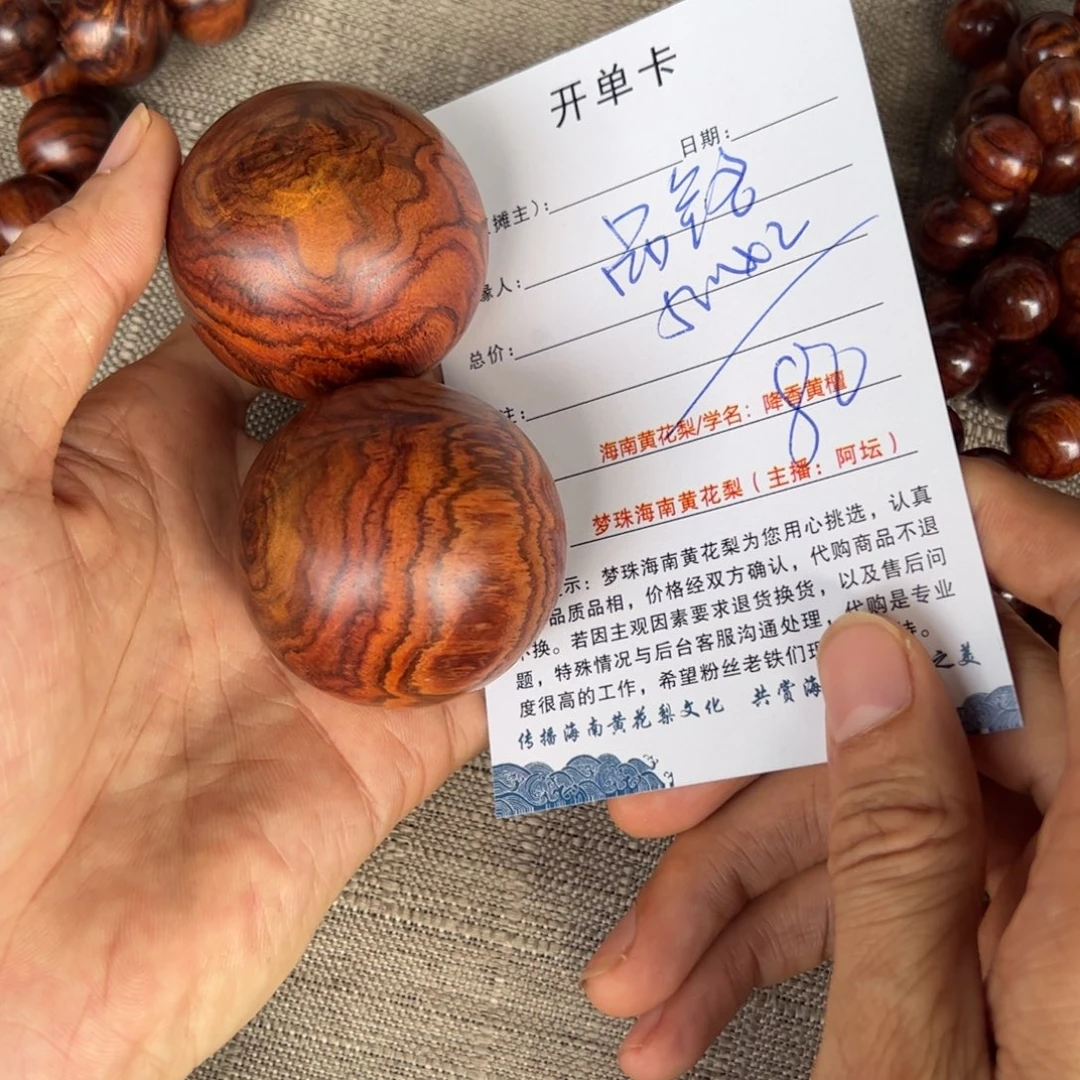 开单卡
日期：
摊主）：
缘人：
总价：
注：
海南黄花梨/学名：降香黄檀
梦珠海南黄花梨（主播：阿坛）
示：梦珠海南黄花梨为您用心挑选，认真
品质品相，价格经双方确认，代购商品不退
不换。若因主观因素要求退货换货，以及售后问
题，特殊情况与后台客服沟通处理，代购是专业
度很高的工作，希望粉丝老铁们理
传播海南黄花梨文化 共赏海
之美